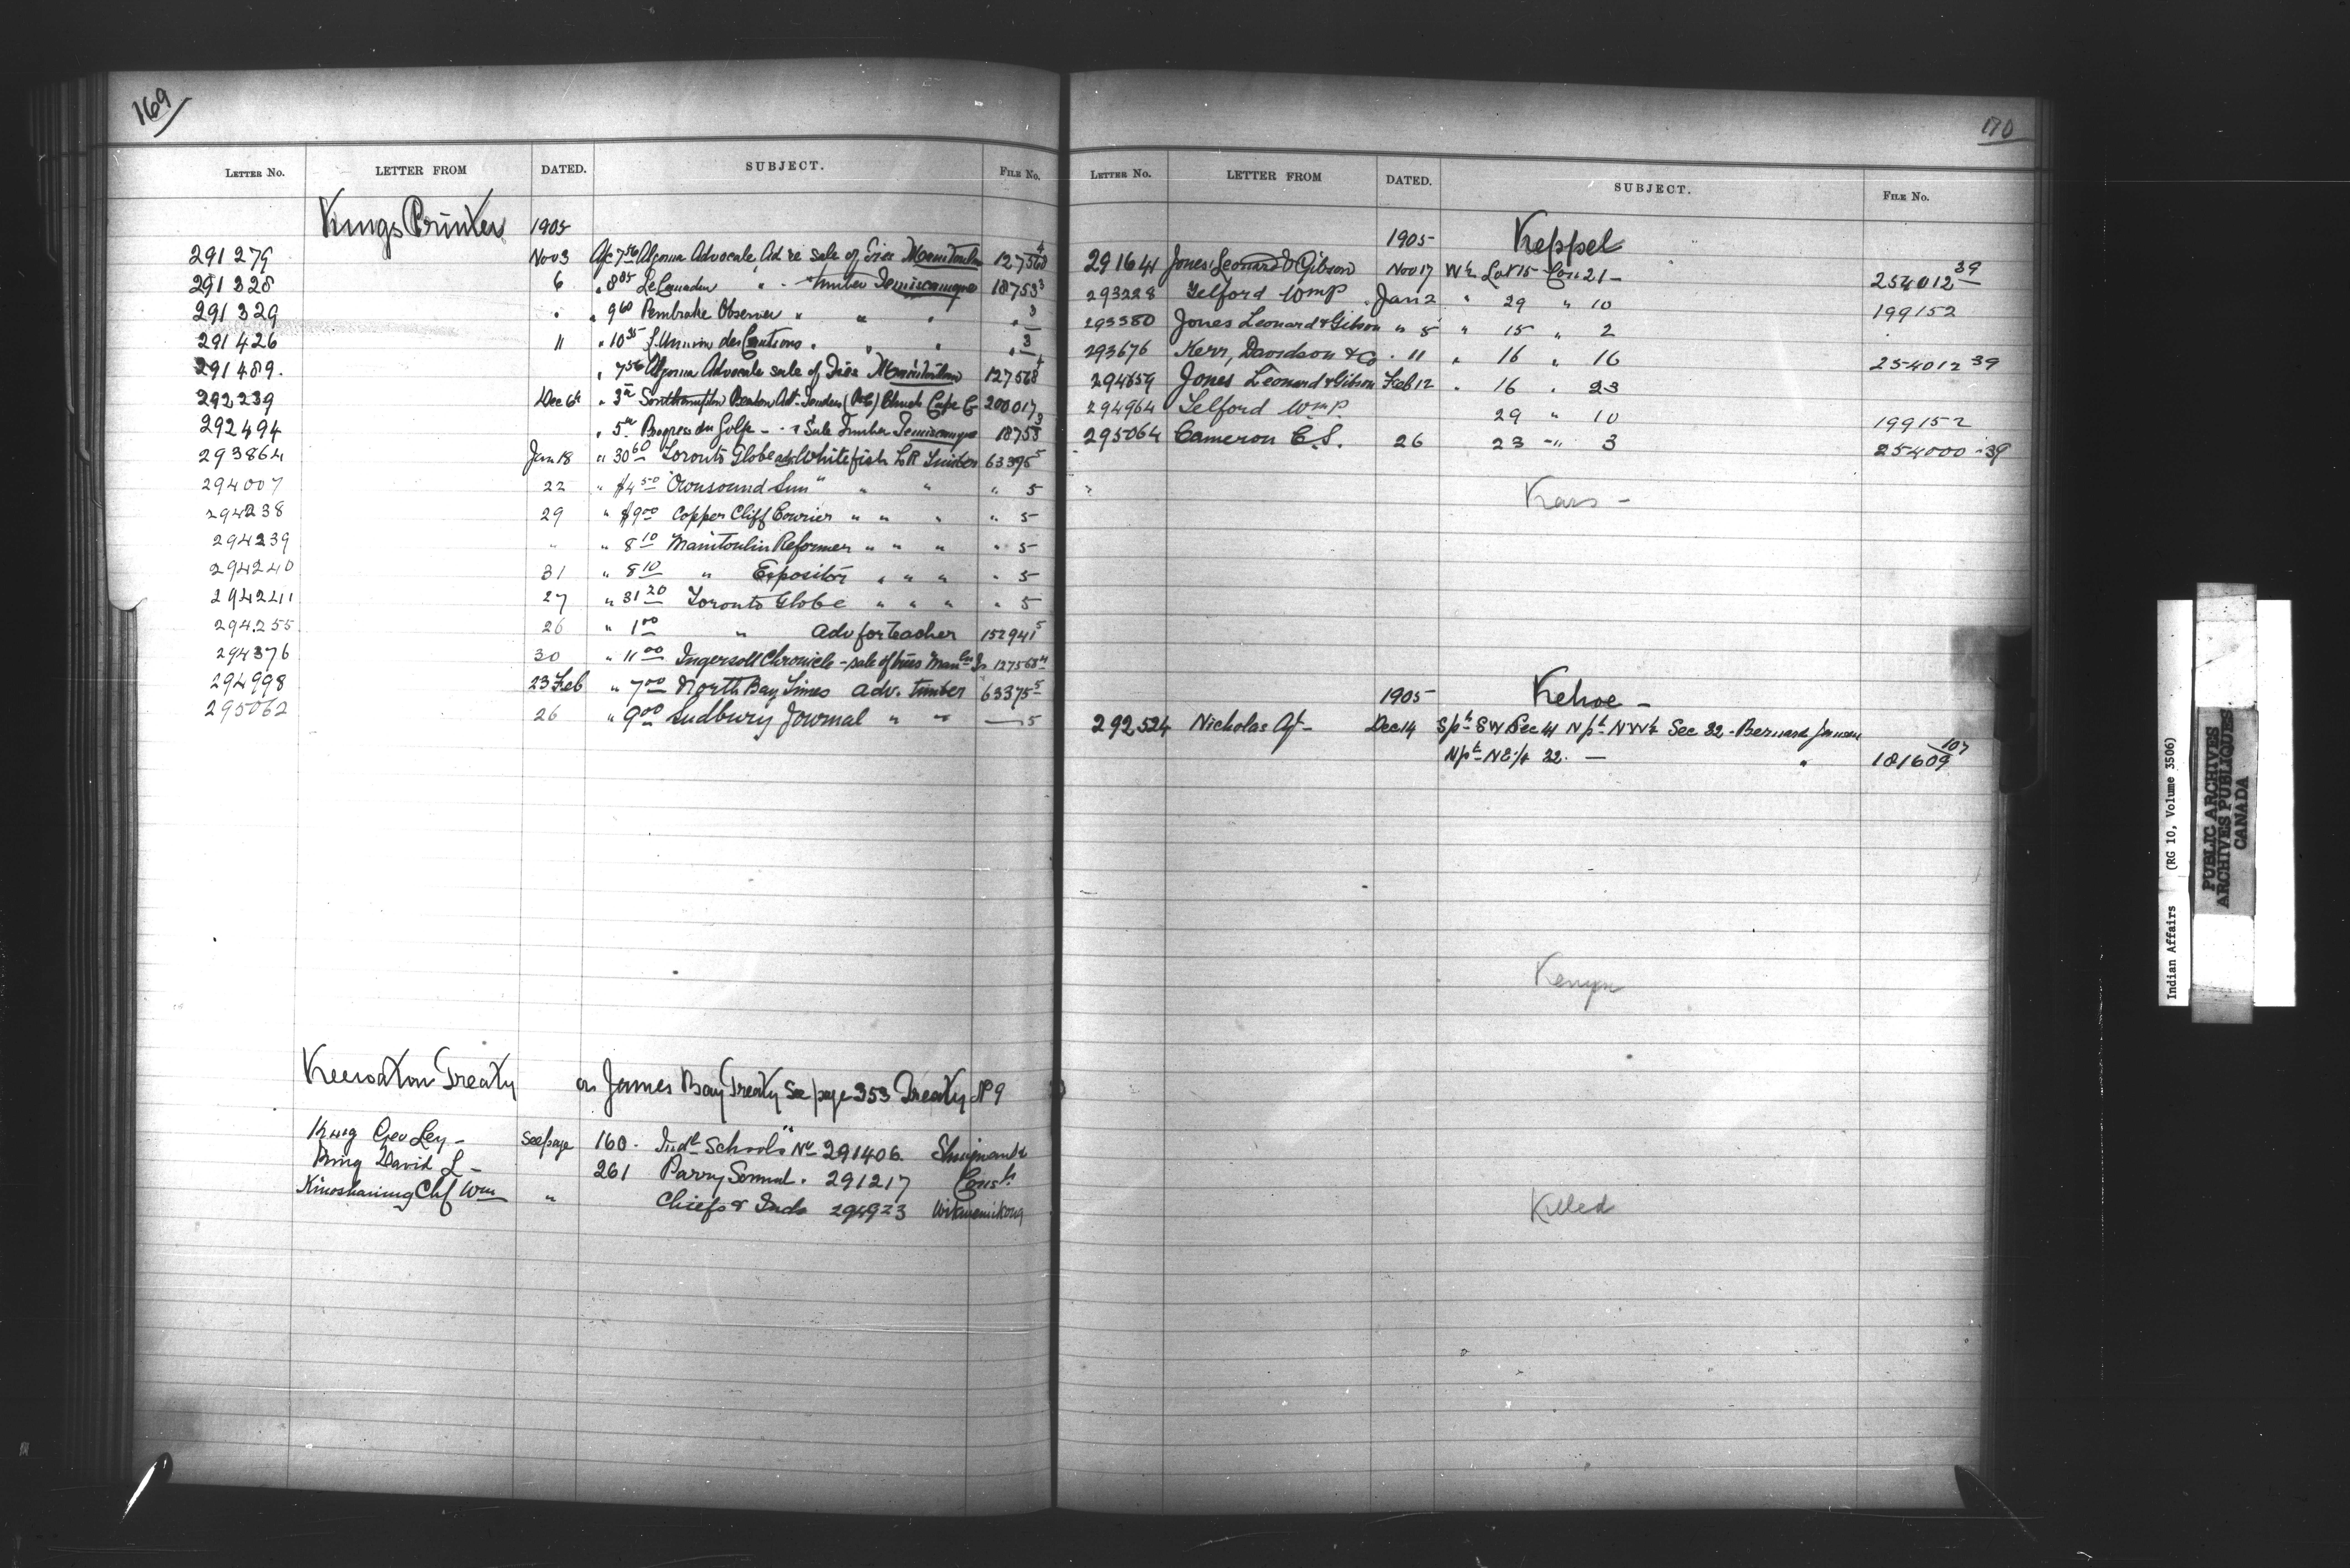 169
LETTER NO. LETTER FROM DATED. SUBJECT. FILE NO.
Kings Printer 1905
291279 Nov 3 a/c 7 56 Algoma Advocate Ad re sale of Isls Manitoulin 127568 4
291328 6 " 8 85 Le Canadien " - timber Temiscamque 18753 3
291329 " " 9 60 Pembroke Observer " " " " 3
291426 11 " 10 35 L'Union des Cantons " " " " 3
291489. " 7 56 Algoma Advocate sale of Isls Manitoulin 127568 4
292239 Dec 6th " 3 Southampton Beacon Adt Tenders Church Cape C 200017
292494 " 5 Progres du Golfe - Sale Timber Temiscamque 18753 3
293864 Jan 18 " 30 60 Toronto Globe adv Whitefish L R Timber 63395 5
294007 22 " $4 50 "Owensound Sun" " " " 5
294238 29 " $9 00 Copper Cliff Courier " " " " 5
294239 " " 8 10 Manitoulin Reformer " " " " 5
294240 31 " 8 10 " Expositor " " " " 5
294241 27 " 31 20 Toronto Globe " " " " 5
294255 26 " 1 00 " Adv for teacher 152941 5
294376 30 " 11 00 Ingersoll Chronicle - sale of trees Man Is 127568 4
294998 23 Feb " 7 00 North Bay Times adv. timber 63375 5
295062 26 " 9 00 Sudbury Journal " " — 5
Keewaton Treaty or James Bay Treaty See page 353 Treaty No 9
King Geo Ley - See page 160 - Indl Schools No 291406 Shingwauk
King David L - 261 Parry Sound . 291217
Kinoshaimg Chf Wm " Chiefs & Inds 294923 Wikwemikong
170
LETTER NO. LETTER FROM DATED. SUBJECT. FILE NO.
1905 Keppel
291641 Jones Leonard & Gibson Nov 17 W½ Lot 15 Con 21 - 254012 39
293228 Telford Wm P. Jan 2 " 29 " 10 199152
293380 Jones Leonard & Gibson " 5 " 15 " 2
293676 Kerr, Davidson & Co " 11 " 16 " 16 254012 39
294659 Jones Leonard & Gibson Feb 12 " 16 " 23
294964 Telford Wm P. 29 " 10 199152
295064 Cameron C.S. 26 23 " 3 254000-39
Kars -
1905 Kehoe -
292524 Nicholas Agt - Dec 14 S pt SW Sec 4 N pt NW¼ Sec 32 - Bernard Jansen
N pt NE¼ 32. — " 181609 107
Kenyon
Killed
Indian Affairs (RG 10, Volume 3506)
PUBLIC ARCHIVES
ARCHIVES PUBLIQUES
CANADA